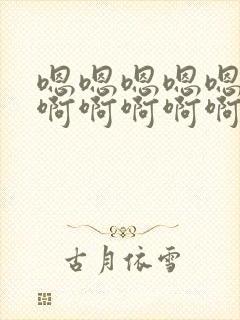 嗯嗯嗯嗯嗯
啊啊啊啊啊
古月依雪